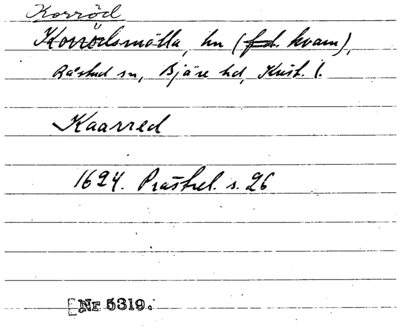 Korröd
Korrödsmölla, hn (f.d. kvarn),
Båstad sn, Bjäre hd, Krist. l.
Kaarred
1624. Prästrel. s. 26
Nr 5319.